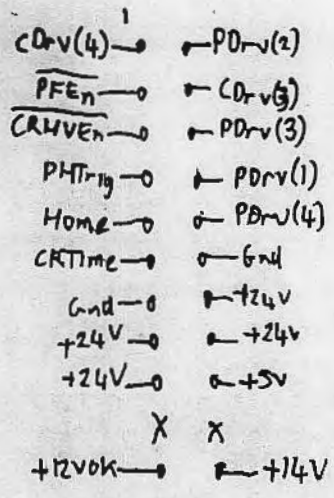 1
CDrv(4) PDrv(2)
PFEn CDrv(3)
CRHVEn PDrv(3)
PHTrig PDrv(1)
Home PDrv(4)
CKTIme Gnd
Gnd +24V
+24V +24V
+24V +5V
X X
+12VOK +14V